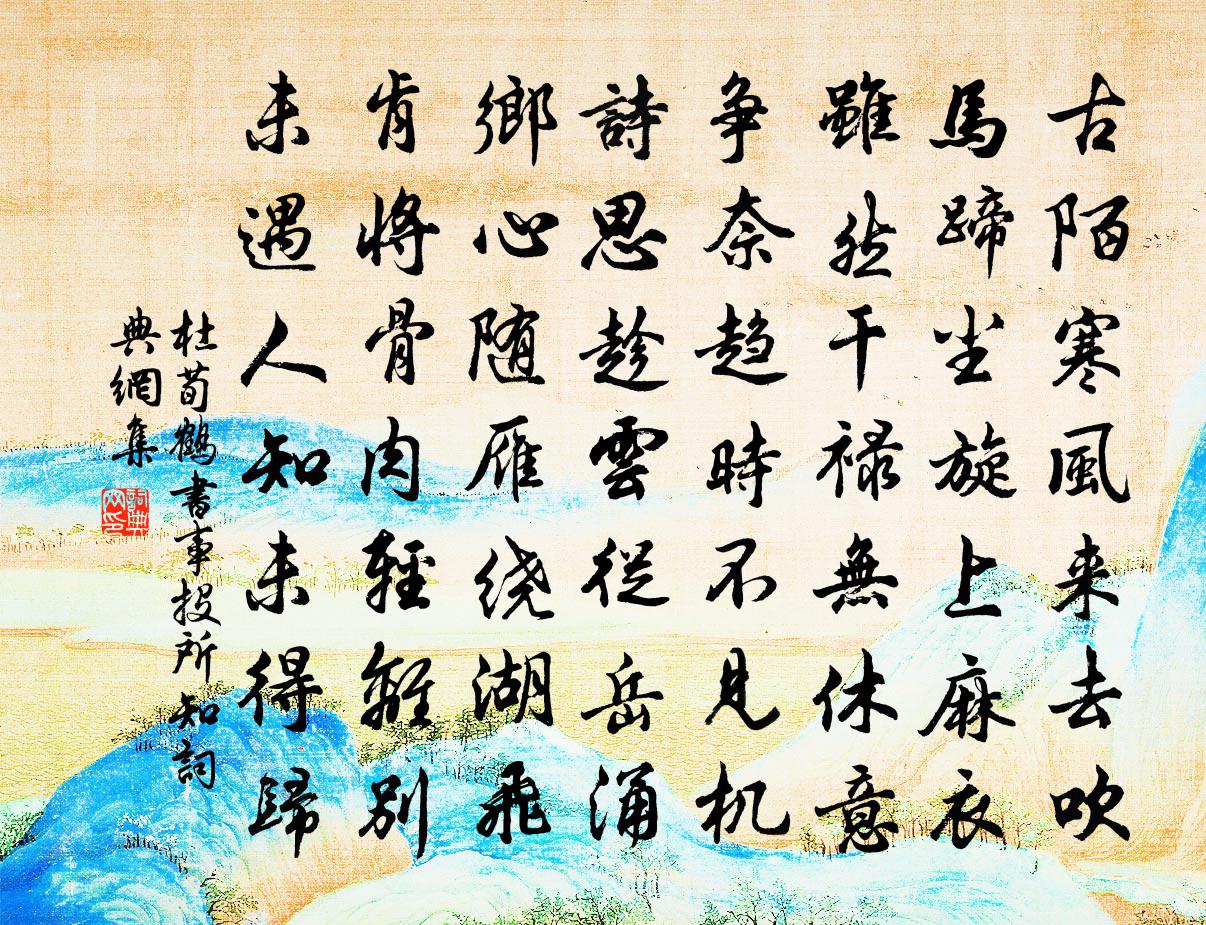 古陌寒風来去吹
馬蹄尘旋上麻衣
雖然干禄無休意
争奈趋時不見机
詩思趁雲從岳涌
鄉心随雁绕湖飛
肯將骨肉輕離別
未遇人知未得歸
杜荀鶴書事投所知詞
典網集
詞典网印